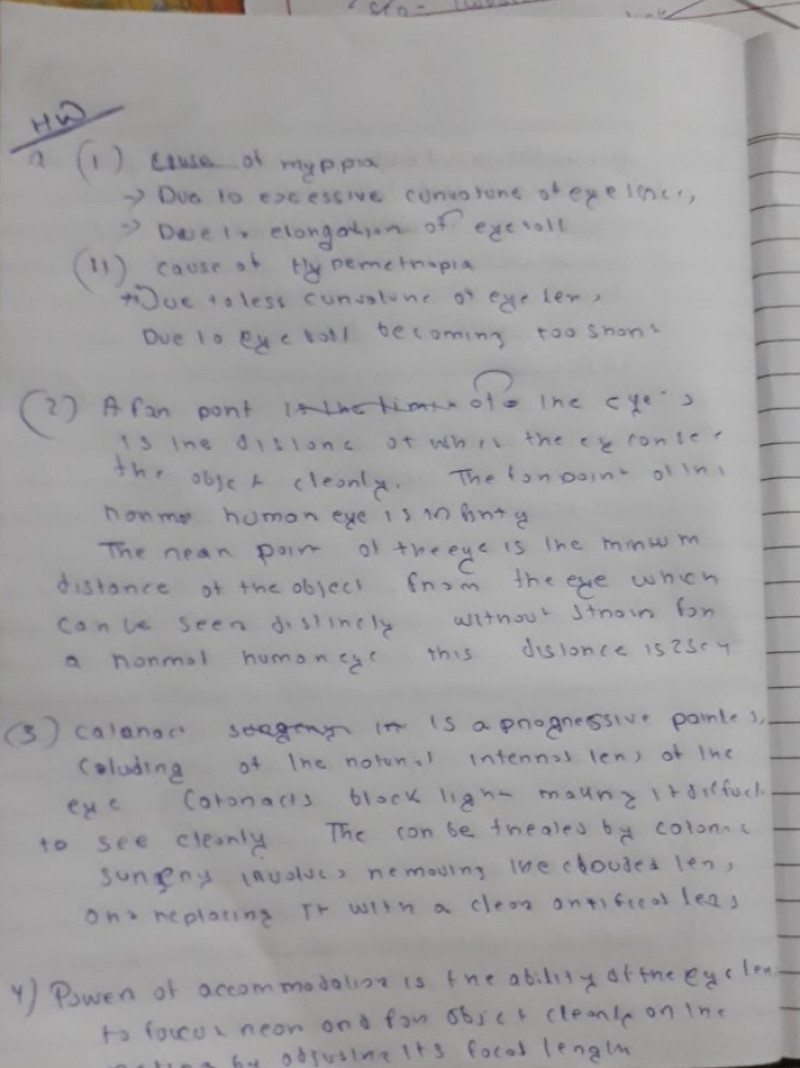 HW
(1) cause of myppia
→ Due to excessive curvature of eye lence,
→ Due to elongation of eyeball
(11) cause of Hypemetropia
→ Due to less curvature of eye lens
Due to eye ball becoming too short
(2) A far pont is the of the eye
is the distanc at which the ey can see
the object clearly. The far point of the
normal human eye is infinty
The near point of the eye is the minwm
distance of the object from the eye which
can be seen distincly without strain for
a normal human eye this distance is 25cm
(3) cataract it is a progressive painless,
Colouding of the natural internal lens of the
eye Cataracts block light making it difficult
to see clearly The can be treated by catarac
surgery involves removing the clouded lens
and replacing it with a clear artificial lens
4) Power of accommodation is the ability of the eye lens
to focus near and far object clearly on the
by adjusting its focal length